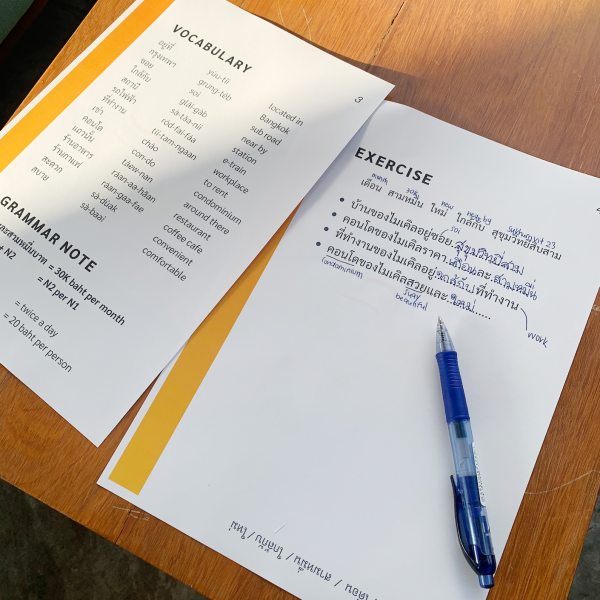 VOCABULARY
3
อยู่ที่ yùu-tîi located in
กรุงเทพฯ grung-têb Bangkok
ซอย soi sub road
ใกล้กับ glâi-gàb near by
สถานี sà-tăa-nii station
รถไฟฟ้า rót-fai-fáa e-train
ที่ทำงาน tîi-tam-ngaan workplace
เช่า châo to rent
คอนโด con-do condominium
แถวนั้น tăew-nán around there
ร้านอาหาร ráan-aa-hăan restaurant
ร้านกาแฟ ráan-gaa-fae coffee cafe
สะดวก sà-dùak convenient
สบาย sà-baai comfortable
GRAMMAR NOTE
= 30K baht per month
+ N2 = N2 per N1
= twice a day
= 20 baht per person
EXERCISE
month 30K new near by Sukhumvit 23
เดือน สามหมื่น ใหม่ ใกล้กับ สุขุมวิทยี่สิบสาม
soi
บ้านของไมเคิลอยู่ซอย
คอนโดของไมเคิลราคา เดือนละ สามหมื่น
ที่ทำงานของไมเคิลอยู่ ใกล้กับ ที่ทำงาน
คอนโดของไมเคิลสวยและ ใหม่.....
condominium
beautiful
work
เดือน / สามหมื่น / ใกล้กับ / ใหม่